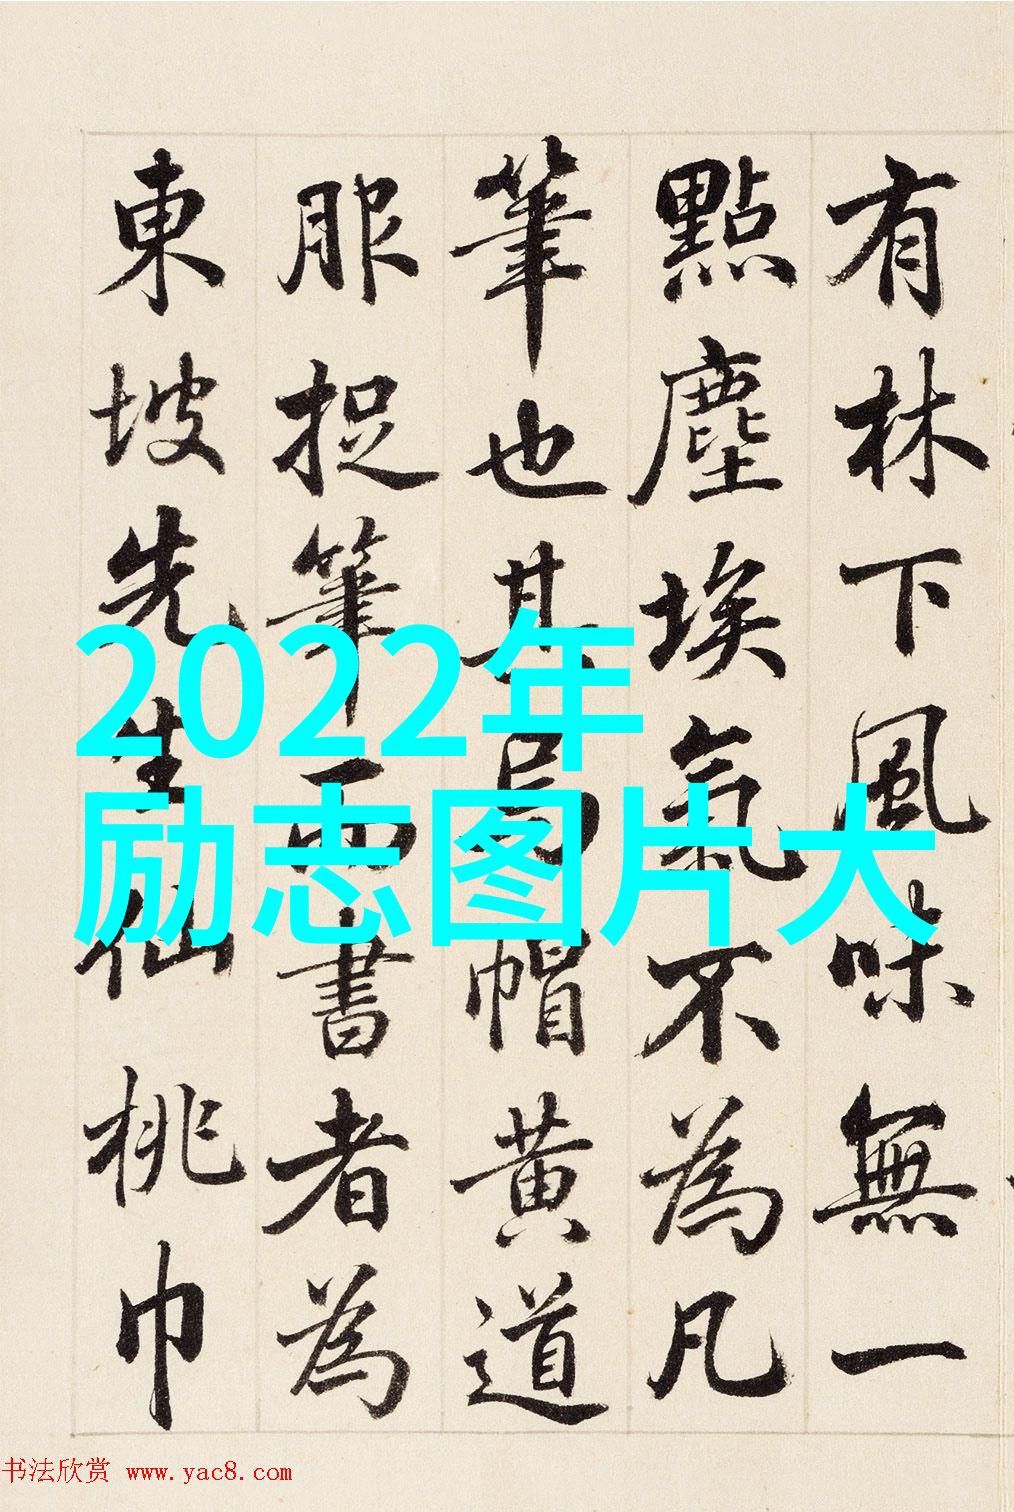 有林下風味無一
點塵埃氣不為凡
筆也其烏帽黃道
服捉筆而書者為
東坡先生仙桃巾
2022年
励志图片大
书法欣赏 www.yac8.com